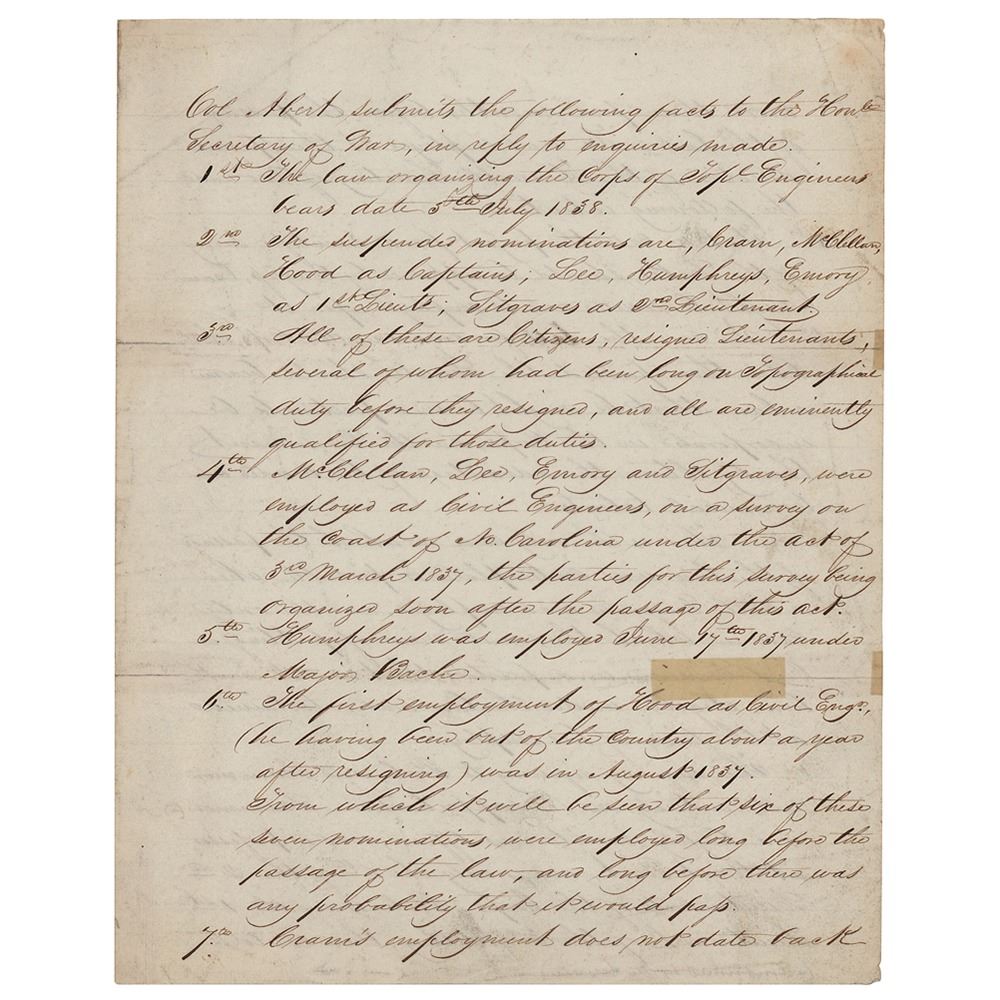 Col Abert submits the following facts to the Honble
Secretary of War, in reply to enquiries made.
1st The law organizing the Corps of Topl. Engineers
bears date 5th July 1838.
2nd The suspended nominations are, Cram, McClellan,
Hood as Captains; Lee, Humphreys, Emory
as 1st Lieuts; Sitgraves as 2nd Lieutenant.
3rd All of these are Citizens, resigned Lieutenants,
several of whom had been long on Topographical
duty before they resigned, and all are eminently
qualified for those duties.
4th McClellan, Lee, Emory and Sitgraves, were
employed as Civil Engineers, on a survey on
the coast of No. Carolina under the act of
3rd March 1837, the parties for this survey being
organized soon after the passage of this act.
5th Humphreys was employed June 17th 1837 under
Major Bache.
6th The first employment of Hood as Civil Engr.,
(he having been out of the Country about a year
after resigning) was in August 1837.
From which it will be seen that six of these
seven nominations, were employed long before the
passage of the law, and long before there was
any probability that it would pass.
7th Cram's employment does not date back